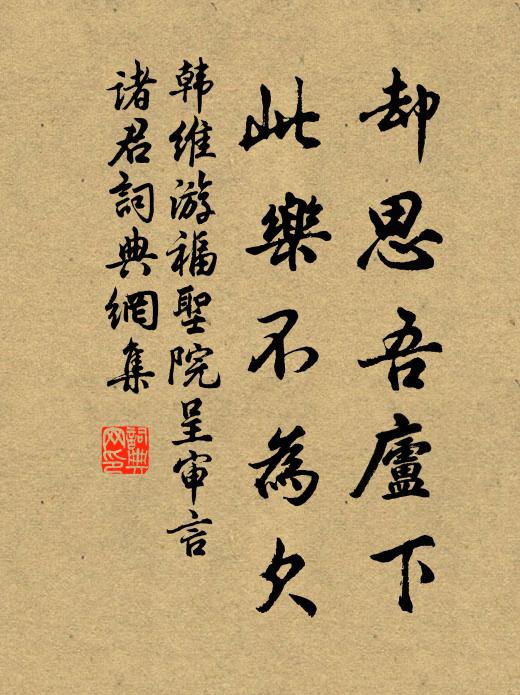 却思吾廬下
此樂不為欠
韩維游福聖院呈审言
諸君詞典網集
詞典网印